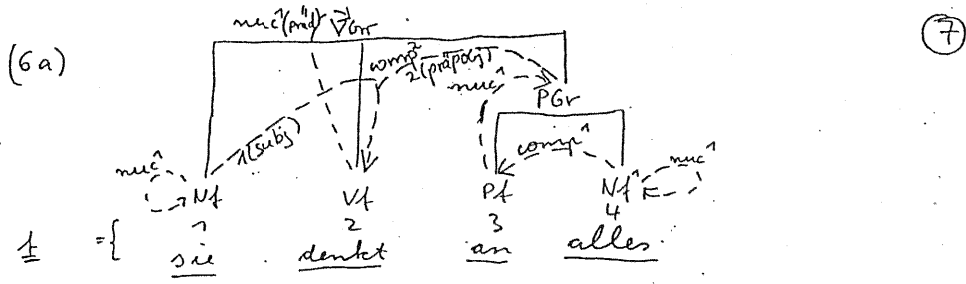 nuc¹(präd) VGr
(6a) 7
comp²
2(präpobj)
nuc¹
PGr
1(subj)
comp¹
nuc¹ nuc¹
Nf Vf Pf Nf
1 2 3 4
f = { sie denkt an alles